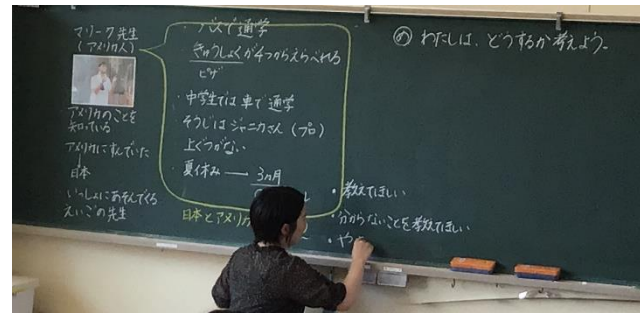 マリーク先生
(アメリカ人)
アメリカのことを
知っている
アメリカにすんでいた
日本
いっしょにあそんでくる
えいごの先生
・バスで通学
きゅうしょくが4つからえらべれる
ピザ
・中学生では車で通学
そうじはジャニカさん(プロ)
上ぐつがない
・夏休み — 3ヵ月
日本とアメリカ
・教えてほしい
・分からないことを教えてほしい
・や
め わたしは、どうするか考えよう。